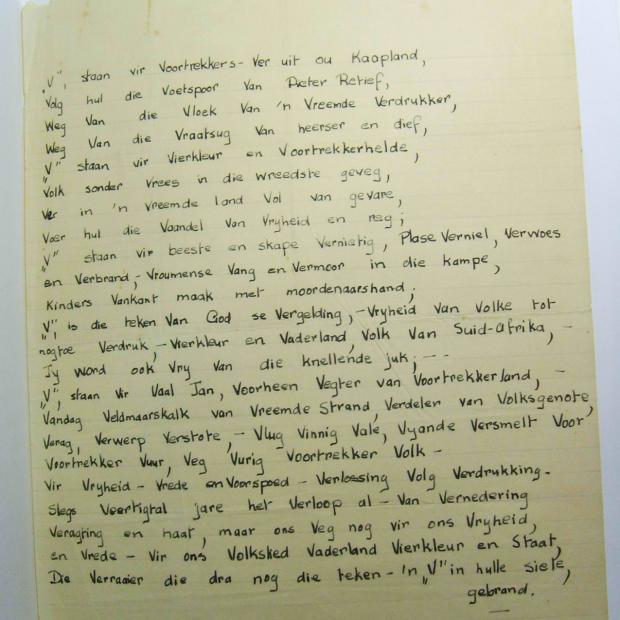 „V", staan vir Voortrekkers - Ver uit ou Kaapland,
Volg hul die Voetspoor Van Pieter Retief,
Weg Van die Vloek Van 'n Vreemde Verdrukker,
Weg Van die Vraatsug Van heerser en dief,
„V" staan vir Vierkleur en Voortrekkerhelde,
Volk sonder Vrees in die wreedste geveg,
Ver in 'n vreemde land Vol van gevare,
Voer hul die Vaandel Van Vryheid en reg;
„V" staan vir beeste en skape Vernietig, Plase Verniel, Verwoes
en Verbrand, - Vroumense Vang en Vermoor in die kampe,
Kinders Vankant maak met moordenaarshand;
„V", is die teken Van God se Vergelding, - Vryheid van Volke tot
nogtoe Verdruk, - Vierkleur en Vaderland, Volk Van Suid-Afrika, -
Jy word ook Vry van die knellende juk; - -
„V", staan Vir Vaal Jan, Voorheen Vegter van Voortrekkerland, -
Vandag Veldmaarskalk van Vreemde Strand, Verdeler van Volksgenote,
Verag, Verwerp Verstote, - Vlug Vinnig Vale, Vyande Versmelt Voor
Voortrekker Vuur, Veg Vurig Voortrekker Volk -
Vir Vryheid - Vrede en Voorspoed - Verlossing Volg Verdrukking.
Slegs Veertigtal jare het Verloop al - Van Vernedering
Veragting en haat, maar ons Veg nog vir ons Vryheid,
en Vrede - Vir ons Volkslied Vaderland Vierkleur en Staat,
Die Verraaier die dra nog die teken - 'n „V" in hulle siele,
gebrand.